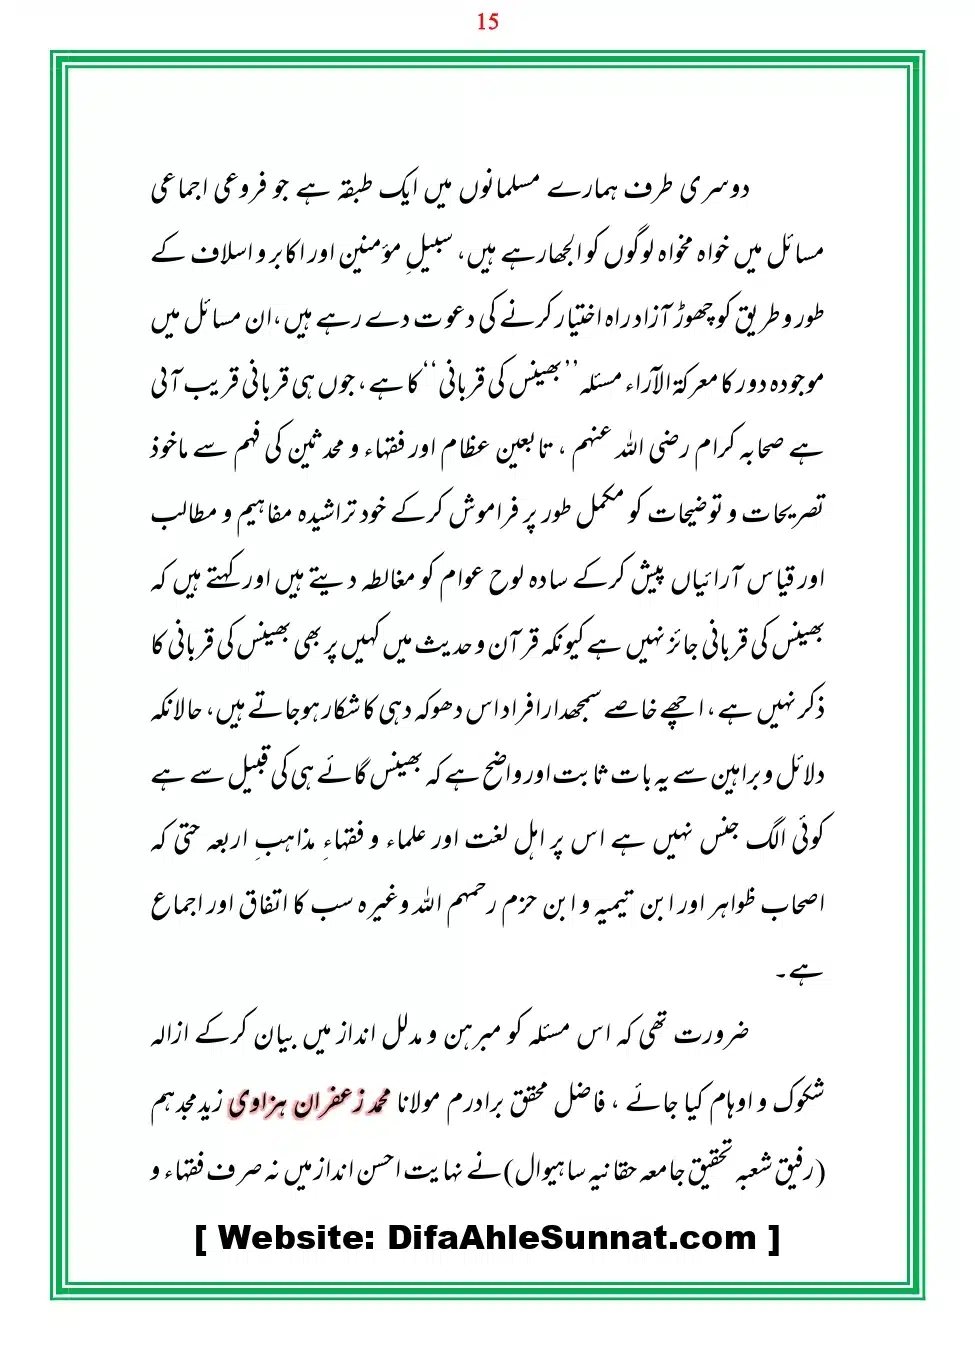 15
دوسری طرف ہمارے مسلمانوں میں ایک طبقہ ہے جو فروعی اجماعی
مسائل میں خواہ مخواہ لوگوں کو الجھارہے ہیں، سبیلِ مؤمنین اور اکابر و اسلاف کے
طور و طریق کو چھوڑ آزاد راہ اختیار کرنے کی دعوت دے رہے ہیں، ان مسائل میں
موجودہ دور کا معرکۃ الآراء مسئلہ ’’بھینس کی قربانی‘‘ کا ہے، جوں ہی قربانی قریب آتی
ہے صحابہ کرام رضی اللہ عنہم، تابعین عظام اور فقہاء و محدثین کی فہم سے ماخوذ
تصریحات و توضیحات کو مکمل طور پر فراموش کرکے خود تراشیدہ مفاہیم و مطالب
اور قیاس آرائیاں پیش کرکے سادہ لوح عوام کو مغالطہ دیتے ہیں اور کہتے ہیں کہ
بھینس کی قربانی جائز نہیں ہے کیونکہ قرآن و حدیث میں کہیں پر بھی بھینس کی قربانی کا
ذکر نہیں ہے، اچھے خاصے سمجھدار افراد اس دھوکہ دہی کا شکار ہوجاتے ہیں، حالانکہ
دلائل و براہین سے یہ بات ثابت اور واضح ہے کہ بھینس گائے ہی کی قبیل سے ہے
کوئی الگ جنس نہیں ہے اس پر اہل لغت اور علماء و فقہاءِ مذاہبِ اربعہ حتی کہ
اصحاب ظواہر اور ابن تیمیہ و ابن حزم رحمہم اللہ وغیرہ سب کا اتفاق اور اجماع
ہے۔
ضرورت تھی کہ اس مسئلہ کو مبرہن و مدلل انداز میں بیان کرکے ازالہ
شکوک و اوہام کیا جائے، فاضل محقق برادرم مولانا محمد زعفران ہزاوی زید مجدہم
(رفیق شعبہ تحقیق جامعہ حقانیہ ساہیوال) نے نہایت احسن انداز میں نہ صرف فقہاء و
[ Website: DifaAhleSunnat.com ]